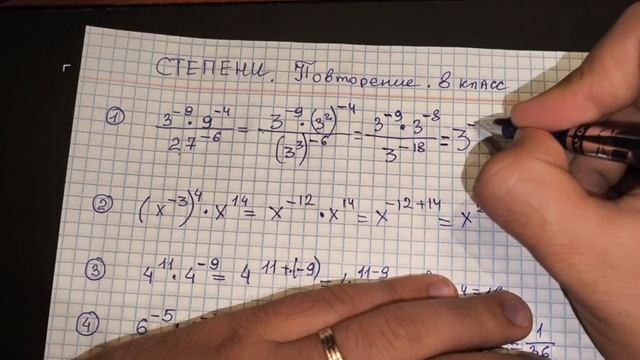 СТЕПЕНИ. Повторение. 8 класс
① 3⁻⁹·9⁻⁴ / 27⁻⁶ = 3⁻⁹·(3²)⁻⁴ / (3³)⁻⁶ = 3⁻⁹·3⁻⁸ / 3⁻¹⁸ = 3⁻
② (x⁻³)⁴·x¹⁴ = x⁻¹²·x¹⁴ = x⁻¹²⁺¹⁴ = x²
③ 4¹¹·4⁻⁹ = 4¹¹⁺⁽⁻⁹⁾ = 4¹¹⁻⁹
④ 6⁻⁵· 1/36